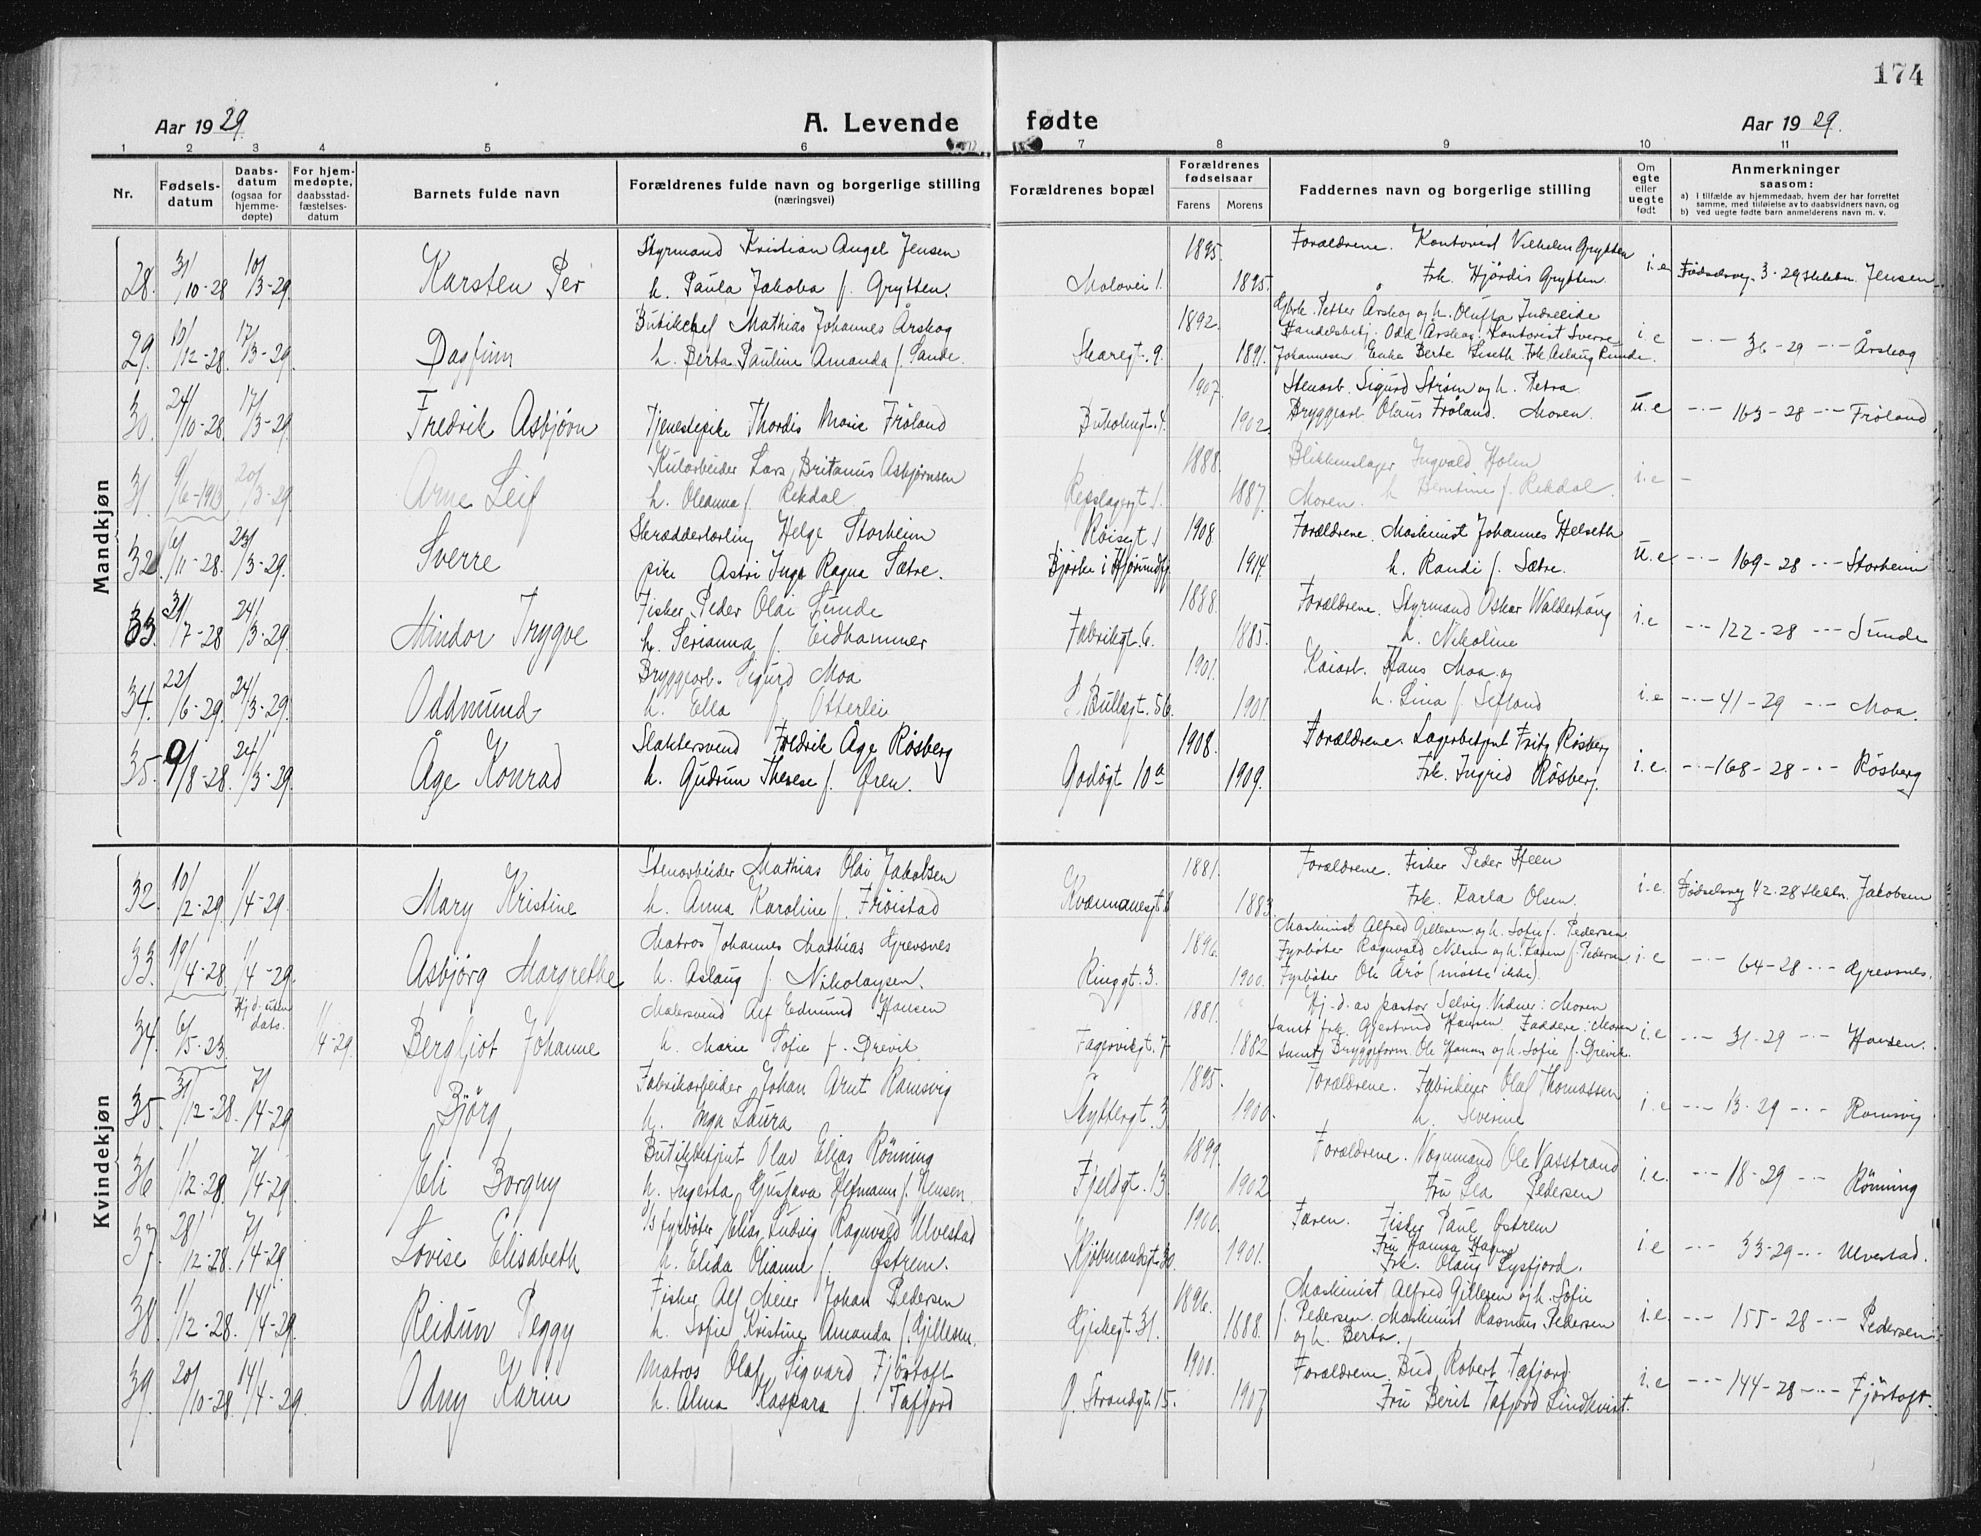 174
Aar 1929.
A. Levende fødte
Aar 1929.
1 2 3 4 5 6 7 8 9 10 11
Nr.
Fødsels-
datum
Daabs-
datum
(ogsaa for
hjemme-
døpte)
For hjem-
medøpte,
daabsstad-
fæstelses-
datum
Barnets fulde navn
Forældrenes fulde navn og borgerlige stilling
(næringsvei)
Forældrenes bopæl
Forældrenes
fødselsaar
Farens Morens
Faddernes navn og borgerlige stilling
Om
egte
eller
uegte
født
Anmerkninger
saasom:
a) i tilfælde av hjemmedaab, hvem der har forrettet
samme, med tilføielse av to daabsvidners navn, og
b) ved uegte fødte barn anmelderens navn m. v.
Mandkjøn
Styrmand Kristian Angel Jensen 1895. Forældrene. Kontorist Vilhelm Grytten
28. 31/10-28 10/3-29. Karsten Per h. Paula Jakoba f. Grytten. Molovei 1. 1895. Frk. Hjördis Grytten. i.e 3-29 Jensen
Butikchef Mathias Johannes Årskog 1892. Petter Årskog og h. Olufta
29. 10/12-28. 17/3-29. Dagfinn h. Berta Pauline Amanda f. Sande. Skaregt. 9. Odd Årskog. Kontorist Sverre i.e
1891. Johannesen Enke Berte Liseth. Frk Aslaug Runde. -·- 36-29 -·- Årskog
1907. Stenarb. Sigurd Ström og h. Petra
30. 24/10-28. 17/3-29. Fredrik Asbjörn Tjenestepike Thordis Marie Fröland 1902. Bryggearb Olaus Fröland. Moren. u.e -·- 163-28 -·- Fröland
Kularbeider Lars Britanus Asbjørnsen 1888. Blikkenslager Ingvald Holm
31. 9/6-1913 20/3-29 Arne Leif h. Oleanna f. Rekdal Repslagergt 1. 1887. Moren. h f. Rekdal. i.e -
Skrædderlærling Helge Storheim Röisegt 1 1908 Forældrene. Maskinist Johannes Helseth
32. 6/11-28. 23/3-29. Sverre pike Astri Inga Ragna Sætre. Björke i Hjörundfj. 1914. h. Randi f. Sætre. u.e -·- 169-28 -·- Storheim
Fisker Peder Olai Sunde 1888. Forældrene. Styrmand Oskar Walderhaug
33. 31/7-28 24/3-29. Mindor Trygve h. Serianna f. Eidhammer Fabrikgt. 6. 1885. h. Nikoline i.e -·- 122-28 -·- Sunde
Bryggearb. Sigurd Moa 1901. Kaiarb. Hans Moa og
34. 22/6-29. 24/3-29. Oddmund h. Ella f. Otterlei Bullsgt. 56. 1901. h. Lina f. Sefland i.e -·- 41-29 -·- Moa.
Slaktersvend Fredrik Åge Rösberg 1908. Forældrene. Lagerbetjent Fritz Rösberg
35. 9/8-28. 24/3-29. Åge Konrad h. Gudrun Therese f. Øren. Godögt 10a 1909. Frk. Ingrid Rösberg. i.e. -·- 168-28 -·- Rösberg
Kvindekjøn
Stenarbeider Mathias Olai Jakobsen 1881. Forældrene. Fisker Peder Heen
32. 10/2-29. 1/4-29. Mary Kristine h. Anna Karoline f. Fröistad 1883. Frk. Karla Olsen. i.e. 42-28 Jakobsen
Matros Johannes Mathias Grevsnes 1896. Maskinist Alfred Gillesen og h. Sofie f. Pedersen
33. 19/4-28. 1/4-29. Asbjörg Margrethe h. Aslaug f. Nikolaysen. Ringgt. 3. Fyrböter Ragnvald Nilsen og h. Karen f. Pedersen i.e
1900. Fyrböter Ole Årö (mötte ikke). -·- 64-28 -·- Grevsnes.
Hj. d. uten dats. Malersvend Alf Edmund Hansen 1881. Hj. d. av pastor Selvig. Vidner: Moren
34. 6/5-23. 1/4-29. Bergljot Johanne h. Marie Sofie f. Drevik Fagervikgt. 7 1882 samt frk. Hansen. Faddere: Moren
samt Bryggeform. Ole Hansen og h. Sofie f. Drevik. i.e -·- 31-29 -·- Hansen.
Fabrikarbeider Johan Arnt Ramsvig 1895. Forældrene. Fabrikeier Olaf Thomassen
35. 31/12-28. 7/4-29 Björg h. Inga Laura Nyttergt. 3 1900. h. Severine i.e -·- 13-29 -·- Ramsvig
Butikkbetjent Olav Elias Rönning 1899. Forældrene. Vognmand Ole Vasstrand
36 1/12-28. 7/4-29. Eli Borgny h. Ingerta Gustava Hofmann f. Jensen. Fjeldgt. 13. 1902 Fru Lea Pedersen i.e. -·- 18-29 -·- Rönning
fyrböter Elias Ludvig Ragnvald Ulvestad 1900. Faren. Fisker Paul Östrem
37. 28/12-28. 7/4-29. Lovise Elisabeth h. Elida Olianne f. Östrem. Kjöbmandsgt. 30. 1901. Fru Hanna Hagen
Frk. Olaug Lysfjord. i.e -·- 33-29 -·- Ulvestad.
Fisker Alf Meier Johan Pedersen 1896. Maskinist Alfred Gillesen og h. Sofie
38. 1/12-28. 14/4-29. Reidun Peggy h. Sofie Kristine Amanda f. Gillesen. Giskegt. 31. 1888. f. Pedersen. Maskinist Rasmus Pedersen
og h. Berta. i.e. -·- 155-28 -·- Pedersen
Matros Olaf Sigvard Fjörtoft 1900. Forældrene. Bud Robert Tafjord.
39. 20/10-28. 14/4-29. Odny Karin h. Alma Kaspara f. Tafjord Ø. Strandgt. 15. 1907 Fru Berit Tafjord Lindkvist. i.e -·- 144-28 -·- Fjörtoft.